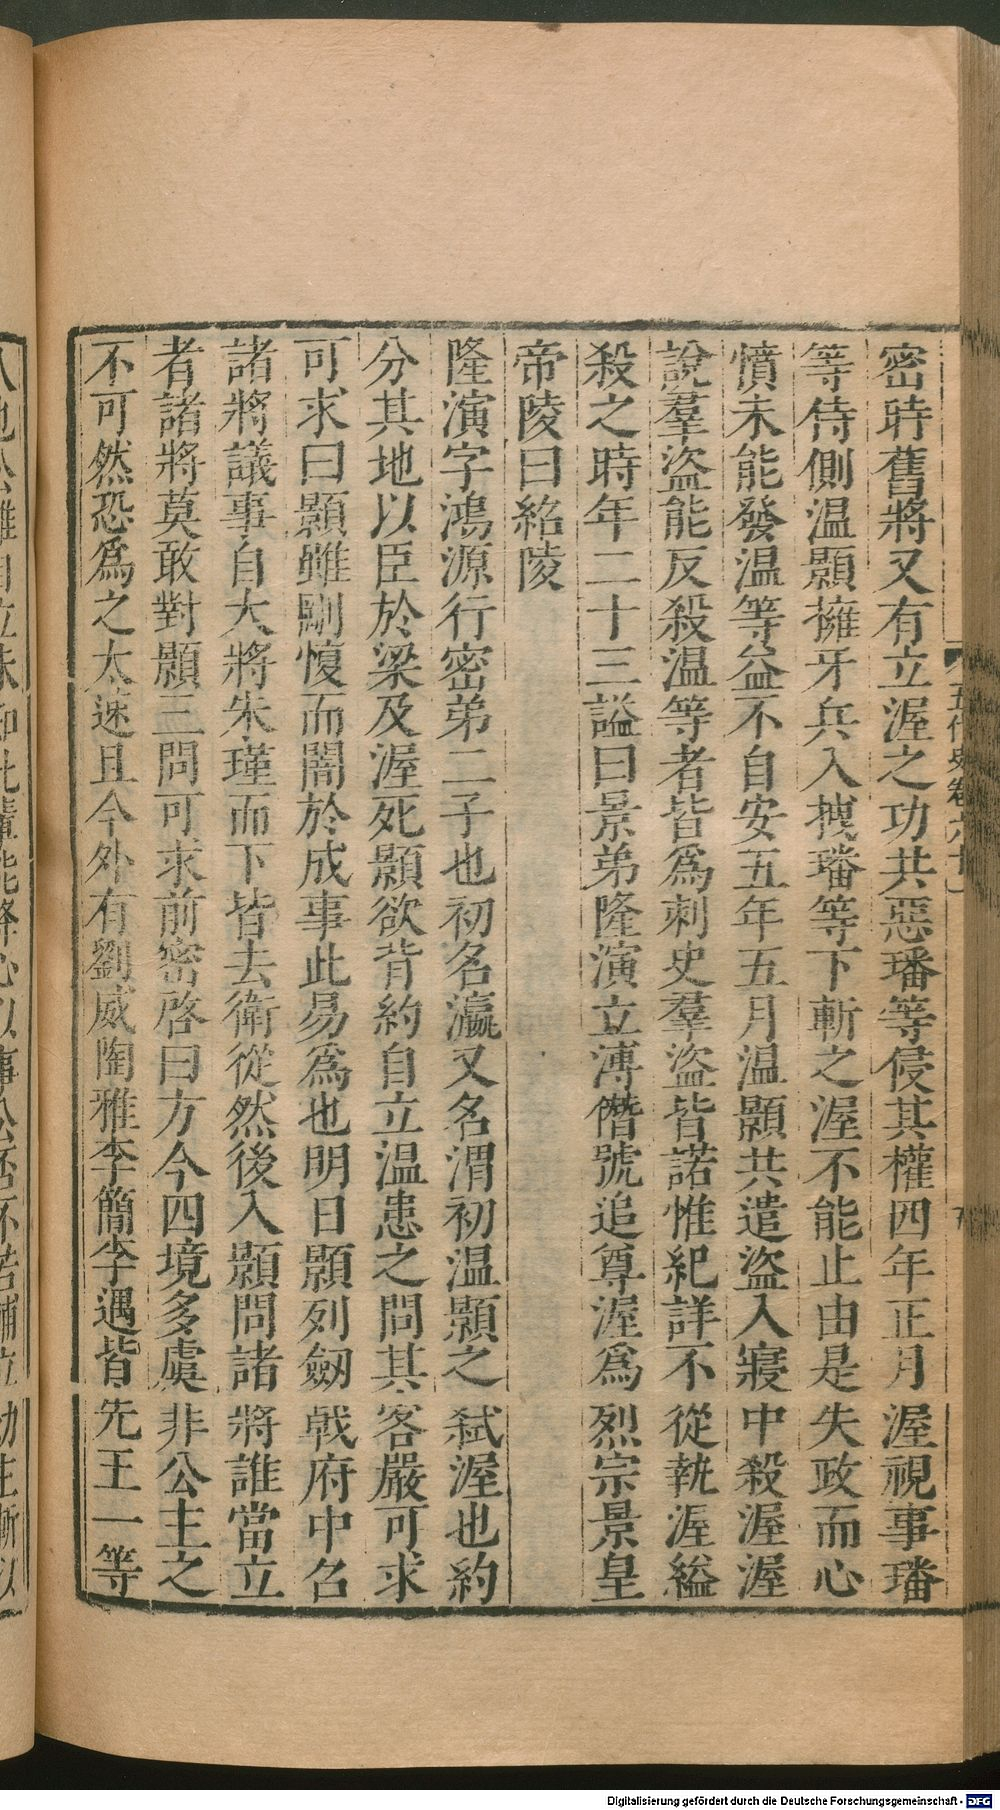 密時舊將又有立渥之功共惡璠等侵其權四年正月渥視事璠
等侍側温顥擁牙兵入拽璠等下斬之渥不能止由是失政而心
憤未能發温等益不自安五年五月温顥共遣盜入寢中殺渥渥
說羣盜能反殺温等者皆爲刺史羣盜皆諾惟紀詳不從執渥縊
殺之時年二十三謚曰景弟隆演立溥僭號追尊渥爲烈宗景皇
帝陵曰紹陵
隆演字鴻源行密弟二子也初名瀛又名渭初温顥之弑渥也約
分其地以臣於梁及渥死顥欲背約自立温患之問其客嚴可求
可求曰顥雖剛愎而闇於成事此易爲也明日顥列劒戟府中召
諸將議事自大將朱瑾而下皆去衛從然後入顥問諸將誰當立
者諸將莫敢對顥三問可求前密啓曰方今四境多虞非公主之
不可然恐爲之太速且今外有劉威陶雅李簡李遇皆先王一等
五代史卷六十一
Digitalisierung gefördert durch die Deutsche Forschungsgemeinschaft - DFG